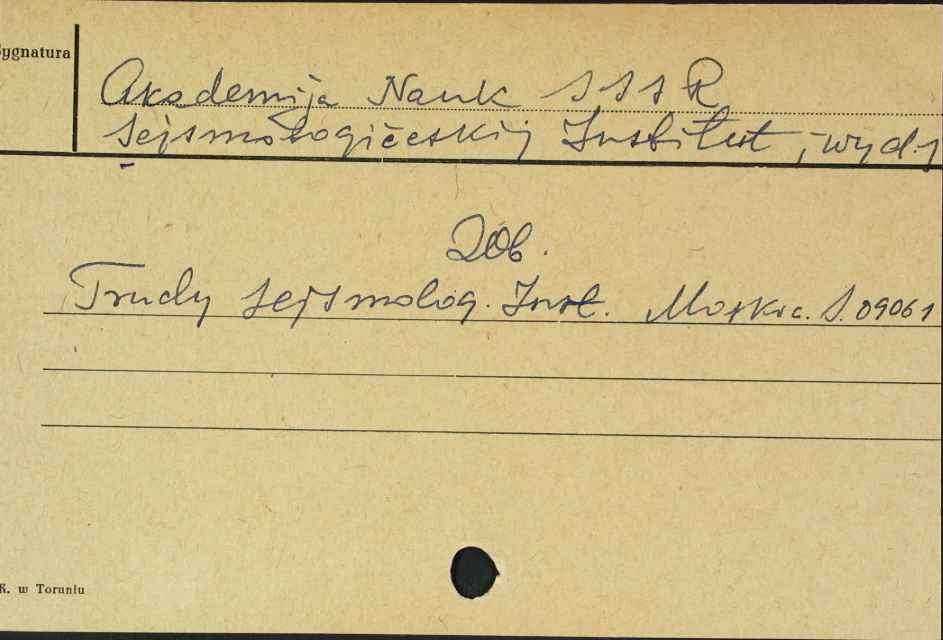 Sygnatura
Akademija Nauk SSSR
Sejsmologičeskij Institut, wyd.
Zob.
Trudy Sejsmolog. Inst. Moskva. S. 09061
K. w Toruniu